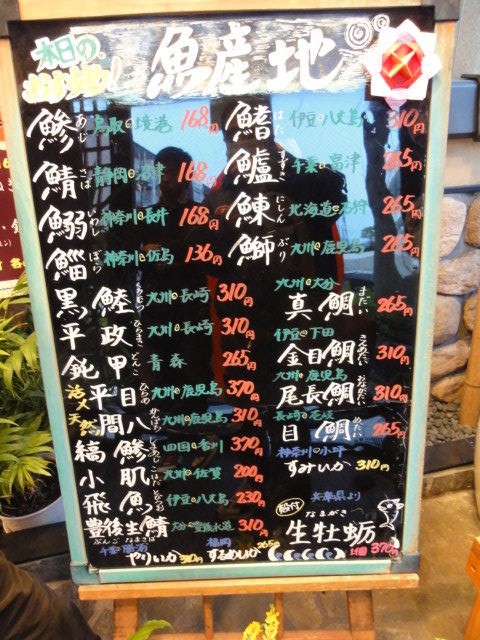 本日の
魚産地
鯵 あじ 鳥取の境港 168円
鯖 さば 静岡の沼津 168円
鰯 いわし 神奈川の長井 168円
鯔 ぼら 神奈川の佐島 136円
黒鯥 九州の長崎 310円
平政 ひらまさ 九州の長崎 310円
鈍甲 青森 265円
活〆 平目 ひらめ 九州の鹿児島 370円
天然 間八 かんぱち 九州の鹿児島 310円
縞鯵 しまあじ 四国の香川 370円
小肌 こはだ 九州の佐賀 200円
飛魚 とびうお 伊豆の八丈島 230円
豊後主鯖 ぶんごなまさば 大分の豊後水道 310円
やりいか 310円
福岡 するめいか 265円
鰭 はた 伊豆の八丈島 310円
鱸 すずき 千葉の富津 265円
鰊 にしん 北海道の石狩 265円
鰤 ぶり 九州の鹿児島 265円
九州の大分
真鯛 まだい 265円
伊豆の下田
金目鯛 きんめだい 310円
九州の鹿児島
尾長鯛 おながだい 310円
長崎の壱岐
目鯛 めだい 265円
神奈川の小坪
すみいか 310円
兵庫県より
殻付 なまがき
生牡蛎 1個 370円